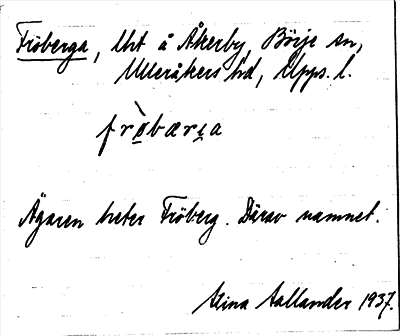 Fröberga, lht å Åkerby, Börje sn,
Ulleråkers hd, Upps. l.
frø̀bærɩa
Ägaren heter Fröberg. Därav namnet.
Stina Sallander 1937.